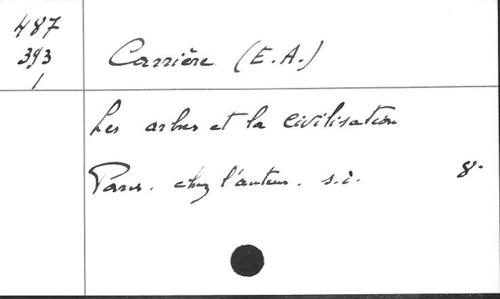 487
393
1
Carrière (E.A.)
Les arbres et la civilisation
Paris. chez l'auteur. s.d. 8°